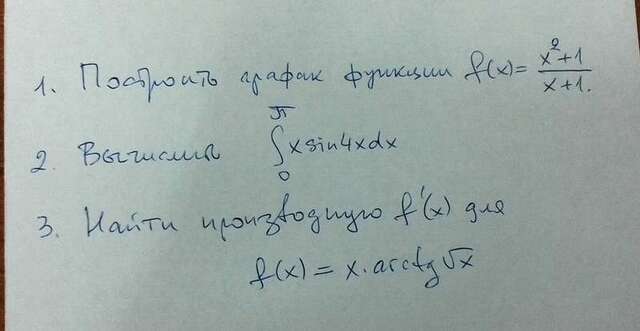 1. Построить график функции f(x) = \frac{x^2+1}{x+1}.
2. Вычислить \int_0^π x sin4x dx
3. Найти производную f'(x) для
f(x) = x · arctg √x